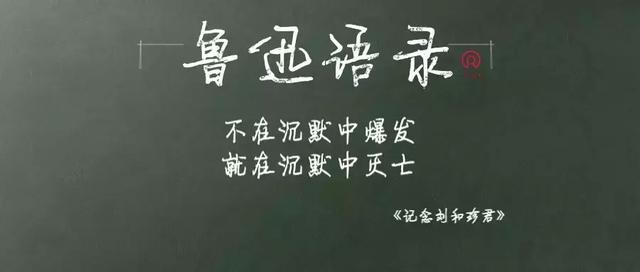 鲁迅语录
不在沉默中爆发
就在沉默中灭士
《记念刘和珍君》